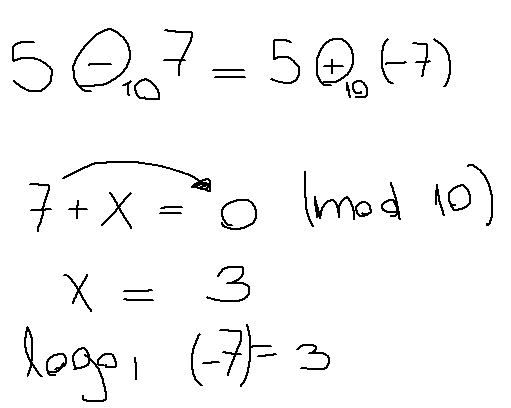 5 ⊖₁₀ 7 = 5 ⊕₁₀ (-7)
7 + x = 0 (mod 10)
x = 3
logo, (-7) = 3